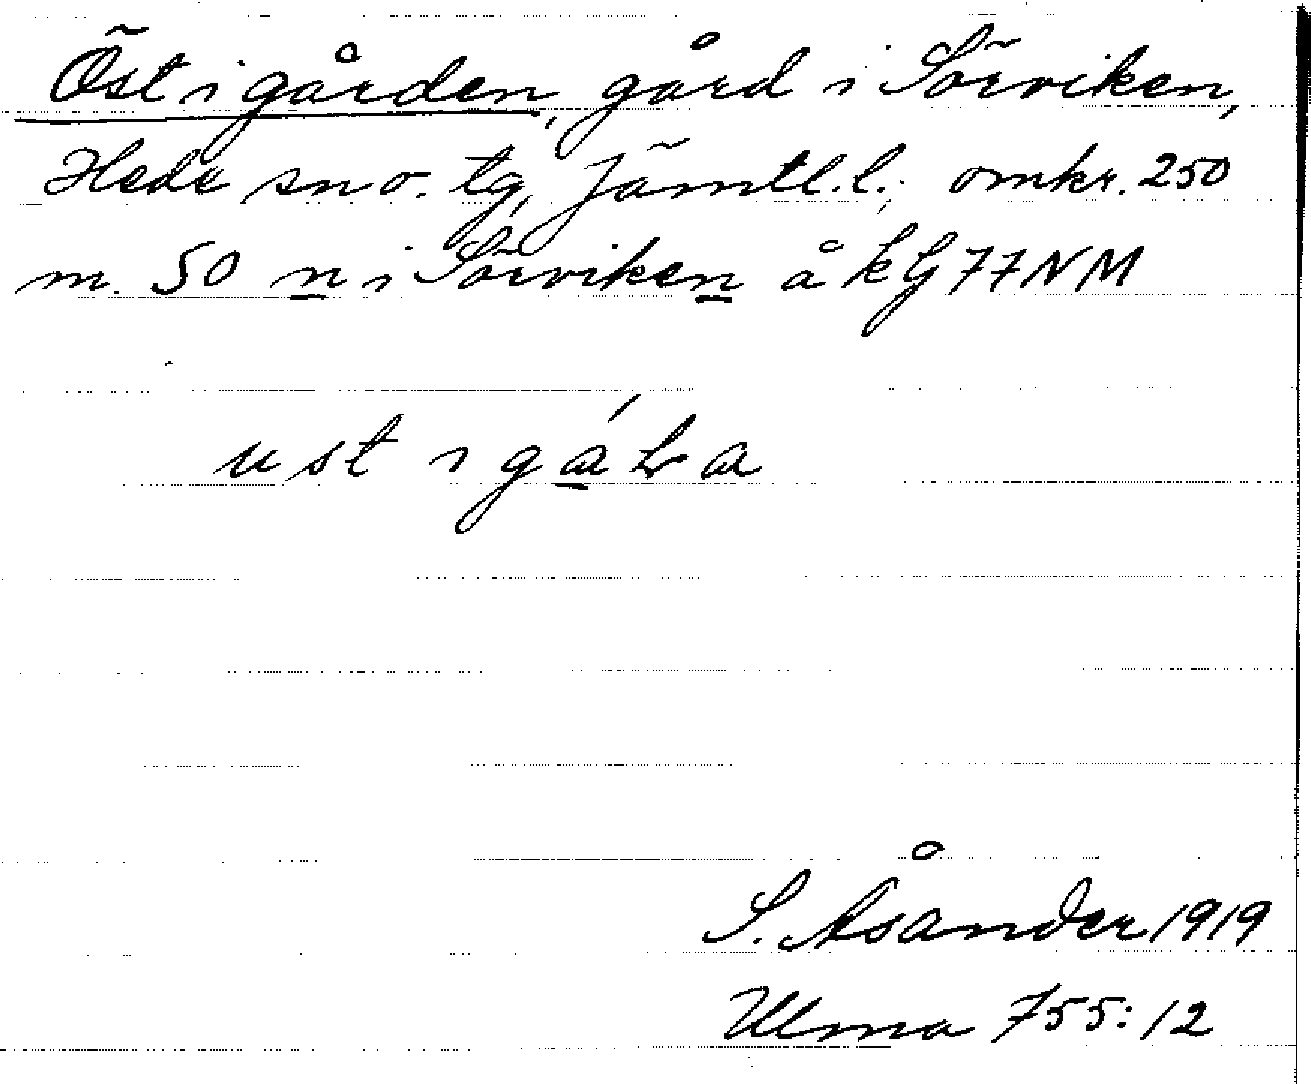 Öst i gården, gård i Sörviken,
Hede sn o. tg, Jämtl. l.; omkr. 250
m. SO n i Sörviken å kG 77 NM
ust i gáLa
S. Åsander 1919
Ulma 755:12